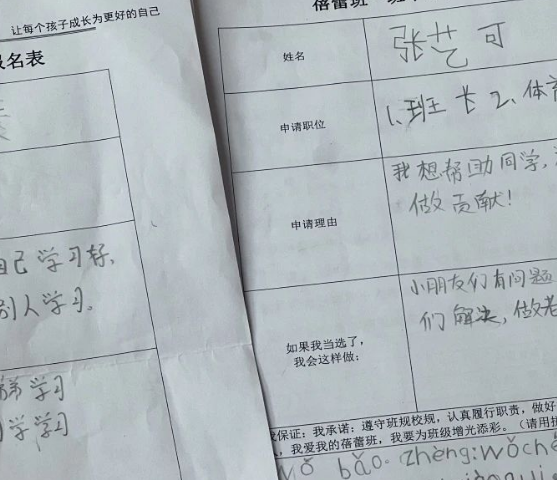 让每个孩子成长为更好的自己
名表
自己学习好,
别人学习。
学习
学学习
蓓蕾班
姓名
张艺可
申请职位
1、班长 2、体育
申请理由
我想帮助同学,
做贡献!
如果我当选了,
我会这样做:
小朋友们有问题
们解决,做老
保证:我承诺:遵守班规校规,认真履行职责,做好
,我爱我的蓓蕾班,我要为班级增光添彩。(请用拼
wǒ bǎo zhèng:wǒ chě